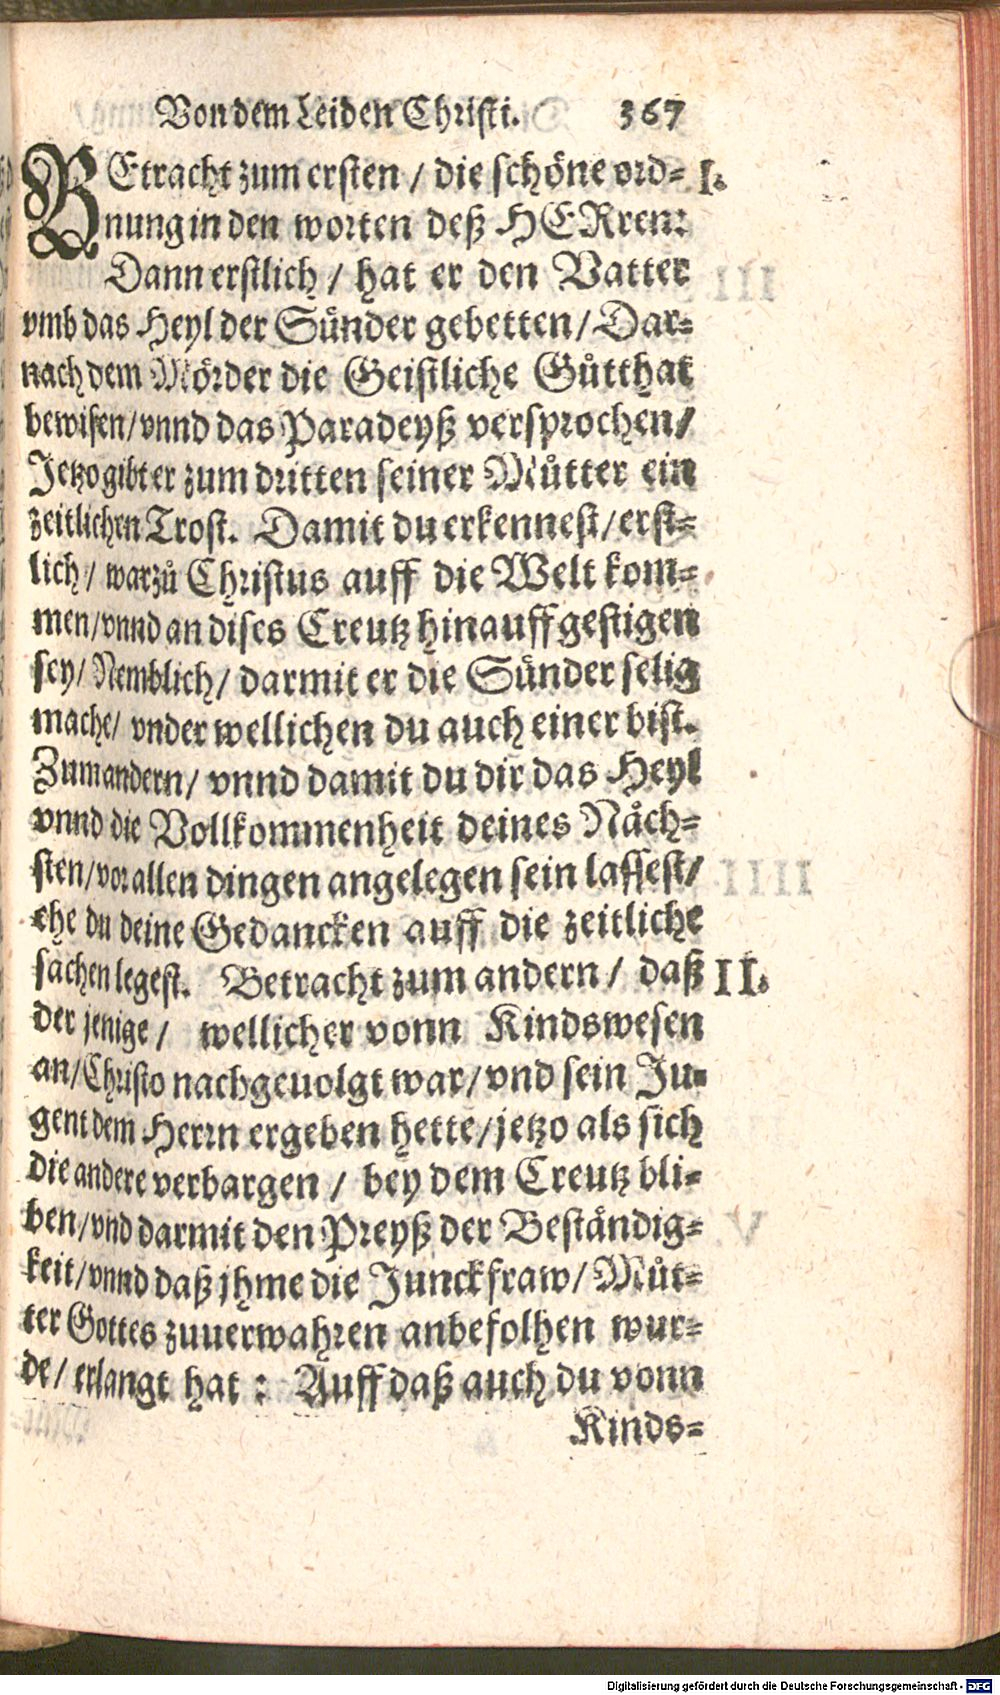 Von dem Leiden Christi. 367
BEtracht zum ersten / die schöne ord- I.
nung in den worten deß HERren:
Dann erstlich / hat er den Vatter
vmb das Heyl der Sünder gebetten / Dar-
nach dem Mörder die Geistliche Gůtthat
bewisen / vnnd das Paradeyß versprochen /
Jetzo gibt er zum dritten seiner Můtter ein
zeitlichen Trost. Damit du erkennest / erst-
lich / warzů Christus auff die Welt kom-
men / vnnd an dises Creutz hinauff gestigen
sey / Nemblich / darmit er die Sünder selig
mache / vnder wellichen du auch einer bist.
Zum andern / vnnd damit du dir das Heyl
vnnd die Vollkommenheit deines Nåch-
sten / vor allen dingen angelegen sein lassest /
ehe du deine Gedancken auff die zeitliche
sachen legest. Betracht zum andern / daß II.
der jenige / wellicher vonn Kindswesen
an / Christo nachgeuolgt war / vnd sein Ju-
gent dem Herrn ergeben hette / jetzo als sich
die andere verbargen / bey dem Creutz bli-
ben / vnd darmit den Preyß der Beståndig-
keit / vnnd daß jhme die Junckfraw / Můt-
ter Gottes zuuerwahren anbefolhen wur-
de / erlangt hat : Auff daß auch du vonn
Kinds-
Digitalisierung gefördert durch die Deutsche Forschungsgemeinschaft - DFG